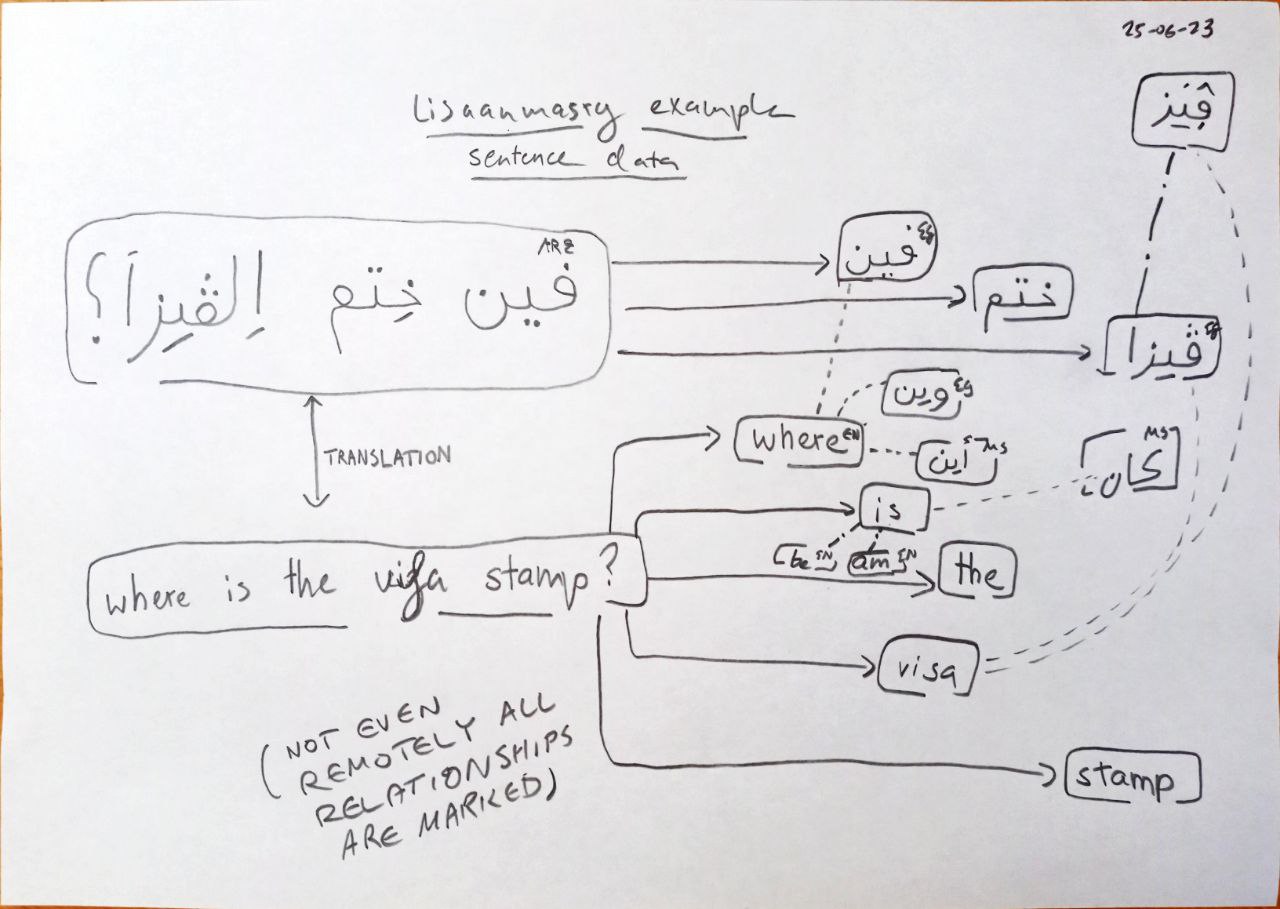 25-06-23
Lisaanmasry example
sentence data
ڤِيَز
ARZ
فين خِتم اِلڤيزاَ؟
فين EG
ختم
ڤيزا EG
TRANSLATION
where EN
وين EG
أين MS
كان MS
is
be EN
am EN
the
where is the visa stamp?
visa
stamp
(NOT EVEN
REMOTELY ALL
RELATIONSHIPS
ARE MARKED)